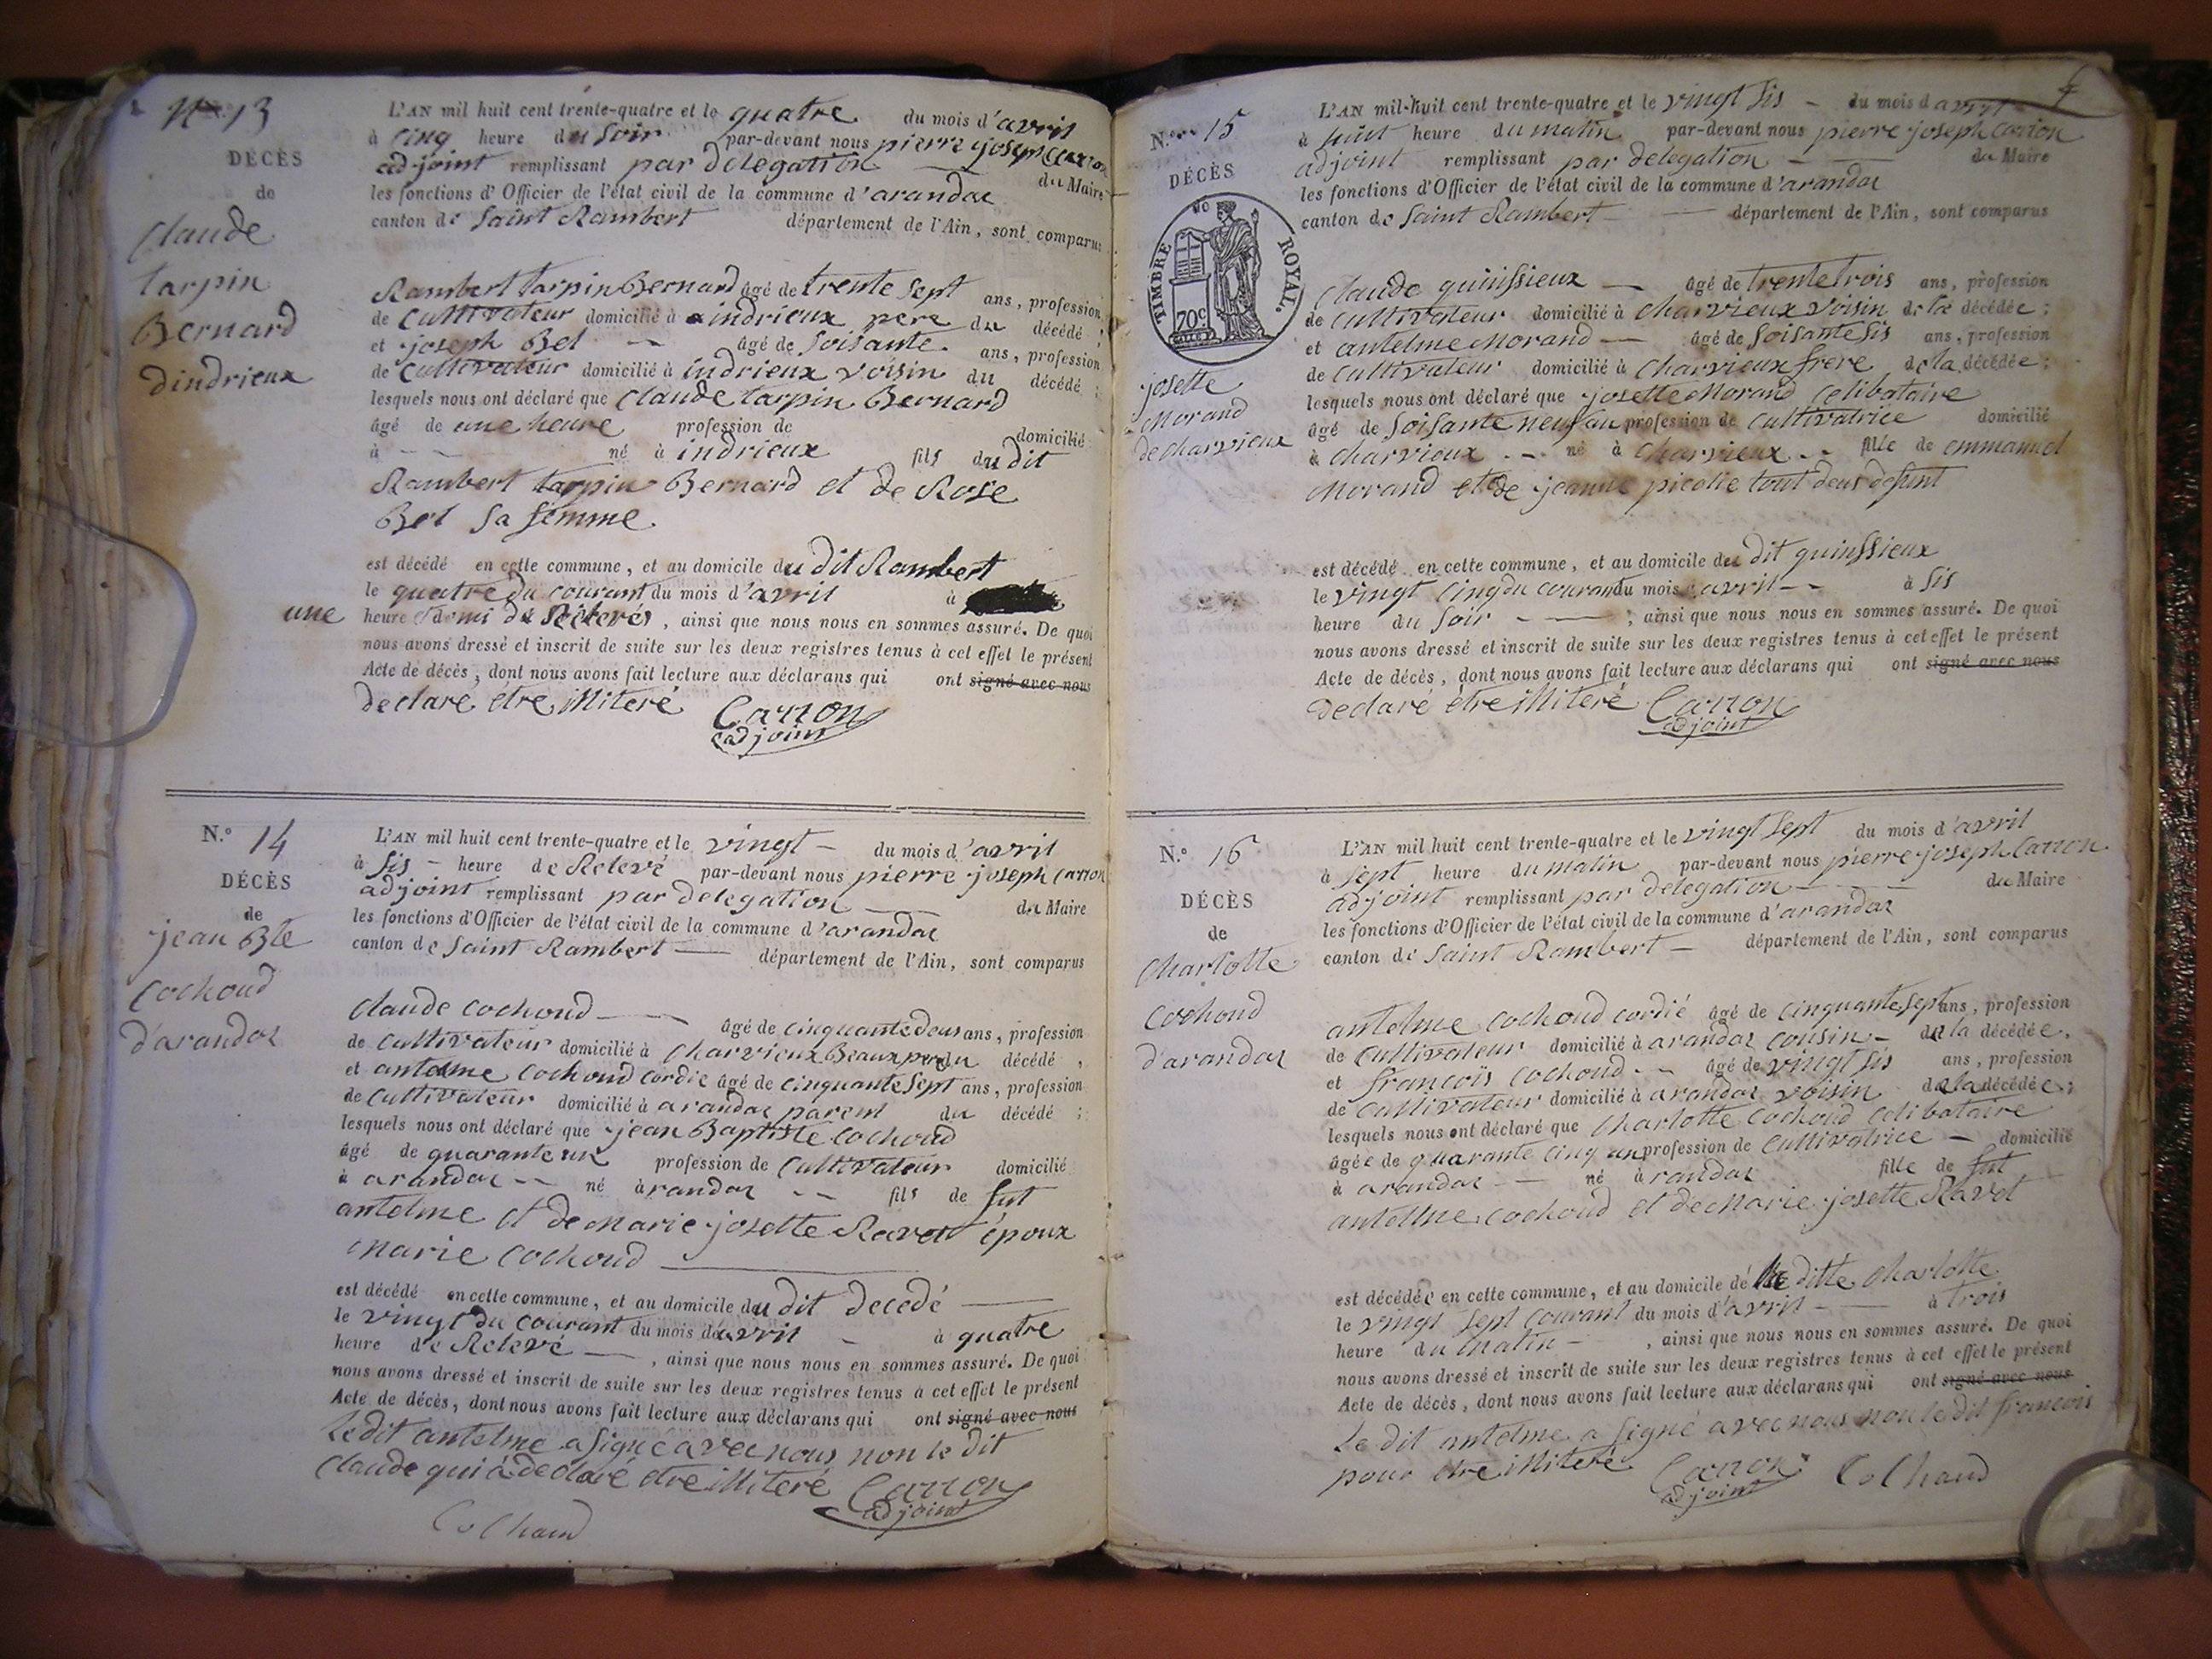 N.° 13
DÉCÈS
de
Claude
tarpin
Bernard
dindrieux
L'AN mil huit cent trente-quatre et le quatre du mois d'avril
à cinq heure du soir par-devant nous pierre joseph Carron
adjoint remplissant par delegation du Maire
les fonctions d'Officier de l'état civil de la commune d'arandas
canton de Saint Rambert département de l'Ain, sont comparus
Rambert tarpin Bernard âgé de trente sept ans, profession
de cultivateur domicilié à indrieux pere du décédé,
et joseph Bel âgé de soisante ans, profession
de cultivateur domicilié à indrieux voisin du décédé;
lesquels nous ont déclaré que Claude tarpin Bernard
âgé de une heure profession de domicilié
à né à indrieux fils du dit
Rambert tarpin Bernard et de Rose
Bel sa femme
est décédé en cette commune, et au domicile du dit Rambert
le quatre du courant du mois d'avril à
une heure et demi de , ainsi que nous nous en sommes assuré. De quoi
nous avons dressé et inscrit de suite sur les deux registres tenus à cet effet le présent
Acte de décès, dont nous avons fait lecture aux déclarans qui ont signé avec nous
declaré être illiteré Carron
adjoint
N.° 14
DÉCÈS
de
jean Bte
Cochoud
d'arandas
L'AN mil huit cent trente-quatre et le vingt du mois d'avril
à sis heure de Relevé par-devant nous pierre joseph Carron
adjoint remplissant par delegation du Maire
les fonctions d'Officier de l'état civil de la commune d'arandas
canton de Saint Rambert département de l'Ain, sont comparus
claude cochoud âgé de cinquante deus ans, profession
de cultivateur domicilié à Charvieux Beaux pere du décédé,
et antelme cochoud cordié âgé de cinquante sept ans, profession
de cultivateur domicilié à arandas parent du décédé;
lesquels nous ont déclaré que jean Baptiste Cochoud
âgé de quarante un profession de cultivateur domicilié
à arandas né à randas fils de fut
antelme et de marie josette Ravet époux
marie cochoud
est décédé en cette commune, et au domicile du dit decedé
le vingt du courant du mois d'avril à quatre
heure de Relevé , ainsi que nous nous en sommes assuré. De quoi
nous avons dressé et inscrit de suite sur les deux registres tenus à cet effet le présent
Acte de décès, dont nous avons fait lecture aux déclarans qui ont signé avec nous
Le dit antelme a signé avec nous non le dit
claude qui à declaré être illiteré Carron
adjoint
Cochaud
N.° 15
DÉCÈS
TIMBRE ROYAL
70c
josette
Morand
de charvieux
L'AN mil-huit cent trente-quatre et le vingt sis du mois d avril
à huit heure du matin par-devant nous pierre joseph Carron
adjoint remplissant par delegation du Maire
les fonctions d'Officier de l'état civil de la commune d'arandas
canton de Saint Rambert département de l'Ain, sont comparus
Claude quinssieux âgé de trente trois ans, profession
de cultivateur domicilié à charvieux voisin de la décédée;
et antelme Morand âgé de soisante sis ans, profession
de cultivateur domicilié à charvieux frere de la décédée;
lesquels nous ont déclaré que josette Morand Celibataire
âgé de soisante neuf an profession de cultivatrice domicilié
à charvieux né à charvieux fille de emmanuel
Morand et de jeanne picolie tout deus defunt
est décédé en cette commune, et au domicile du dit quinssieux
le vingt cinq du courant du mois d'avril à sis
heure du soir ; ainsi que nous nous en sommes assuré. De quoi
nous avons dressé et inscrit de suite sur les deux registres tenus à cet effet le présent
Acte de décès, dont nous avons fait lecture aux déclarans qui ont signé avec nous
declaré être illiteré Carron
adjoint
N.° 16
DÉCÈS
de
Charlotte
Cochoud
d'arandas
L'AN mil huit cent trente-quatre et le vingt sept du mois d'avril
à sept heure du matin par-devant nous pierre joseph Carron
adjoint remplissant par delegation du Maire
les fonctions d'Officier de l'état civil de la commune d'arandas
canton de Saint Rambert département de l'Ain, sont comparus
antelme cochoud cordié âgé de cinquante sept ans, profession
de cultivateur domicilié à arandas cousin de la décédée,
et francois cochoud âgé de vingt sis ans, profession
de cultivateur domicilié à arandas voisin de la décédée;
lesquels nous ont déclaré que Charlotte Cochoud Celibataire
âgée de quarante cinq an profession de cultivatrice domicilié
à arandas né à randas fille de fut
antelme cochoud et de marie josette Ravet
est décédée en cette commune, et au domicile de la ditte Charlotte
le vingt sept courant du mois d'avril à trois
heure du matin , ainsi que nous nous en sommes assuré. De quoi
nous avons dressé et inscrit de suite sur les deux registres tenus à cet effet le présent
Acte de décès, dont nous avons fait lecture aux déclarans qui ont signé avec nous
Le dit antelme a signé avec nous non le dit francois
pour être illiteré Carron Cochaud
adjoint